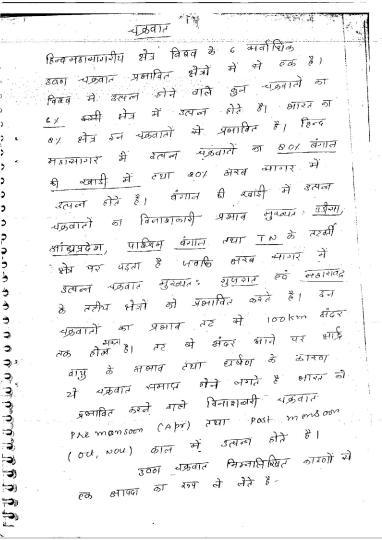 चक्रवात
हिन्द महासागरीय क्षेत्र विश्व के 6 सर्वाधिक
उष्ण चक्रवात प्रभावित क्षेत्रों में से एक है।
विश्व में उत्पन्न होने वाले कुल चक्रवातों का
6% इसी क्षेत्र में उत्पन्न होते है। भारत का
8% क्षेत्र इन चक्रवातों से प्रभावित है। हिन्द
महासागर में उत्पन्न चक्रवातों का 80% बंगाल
की खाडी में तथा 20% अरब सागर में
उत्पन्न होते है। बंगाल की खाडी में उत्पन्न
चक्रवातों का विनाशकारी प्रभाव मुख्यतः
आंध्रप्रदेश, पश्चिम बंगाल तथा TN के तटवर्ती
क्षेत्र पर पड़ता है जबकि अरब सागर में
उत्पन्न चक्रवात मुख्यतः गुजरात एवं महाराष्ट्र
के तटीय क्षेत्रों को प्रभावित करते है। इन
चक्रवातों का प्रभाव तट से 100km अंदर
तक होता है। तट से अंदर आने पर आर्द्र
वायु के अभाव तथा घर्षण के कारण
ये चक्रवात समाप्त होने लगते है भारत को
प्रभावित करने वाले विनाशकारी चक्रवात
Pre mansoon (Apr) तथा Post monsoon
(Oct, Nov) काल में उत्पन्न होते है।
उष्ण चक्रवात निम्नलिखित कारणों से
एक आपदा का रूप ले लेते है-